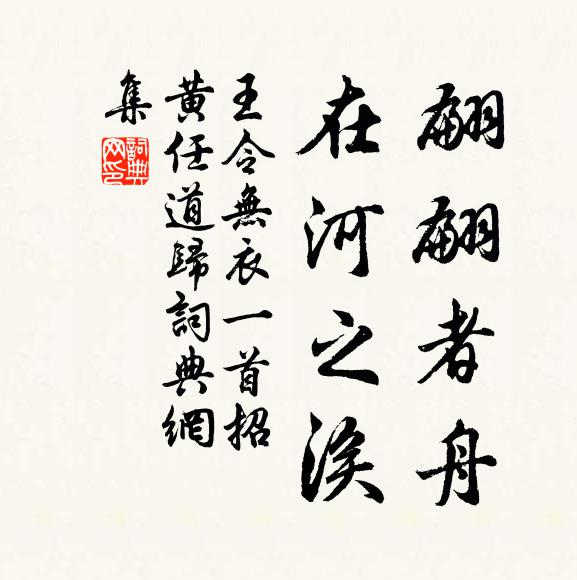 翩翩者舟
在河之涘
王令無衣一首招
黃任道歸詞典網
集
詞典
网印